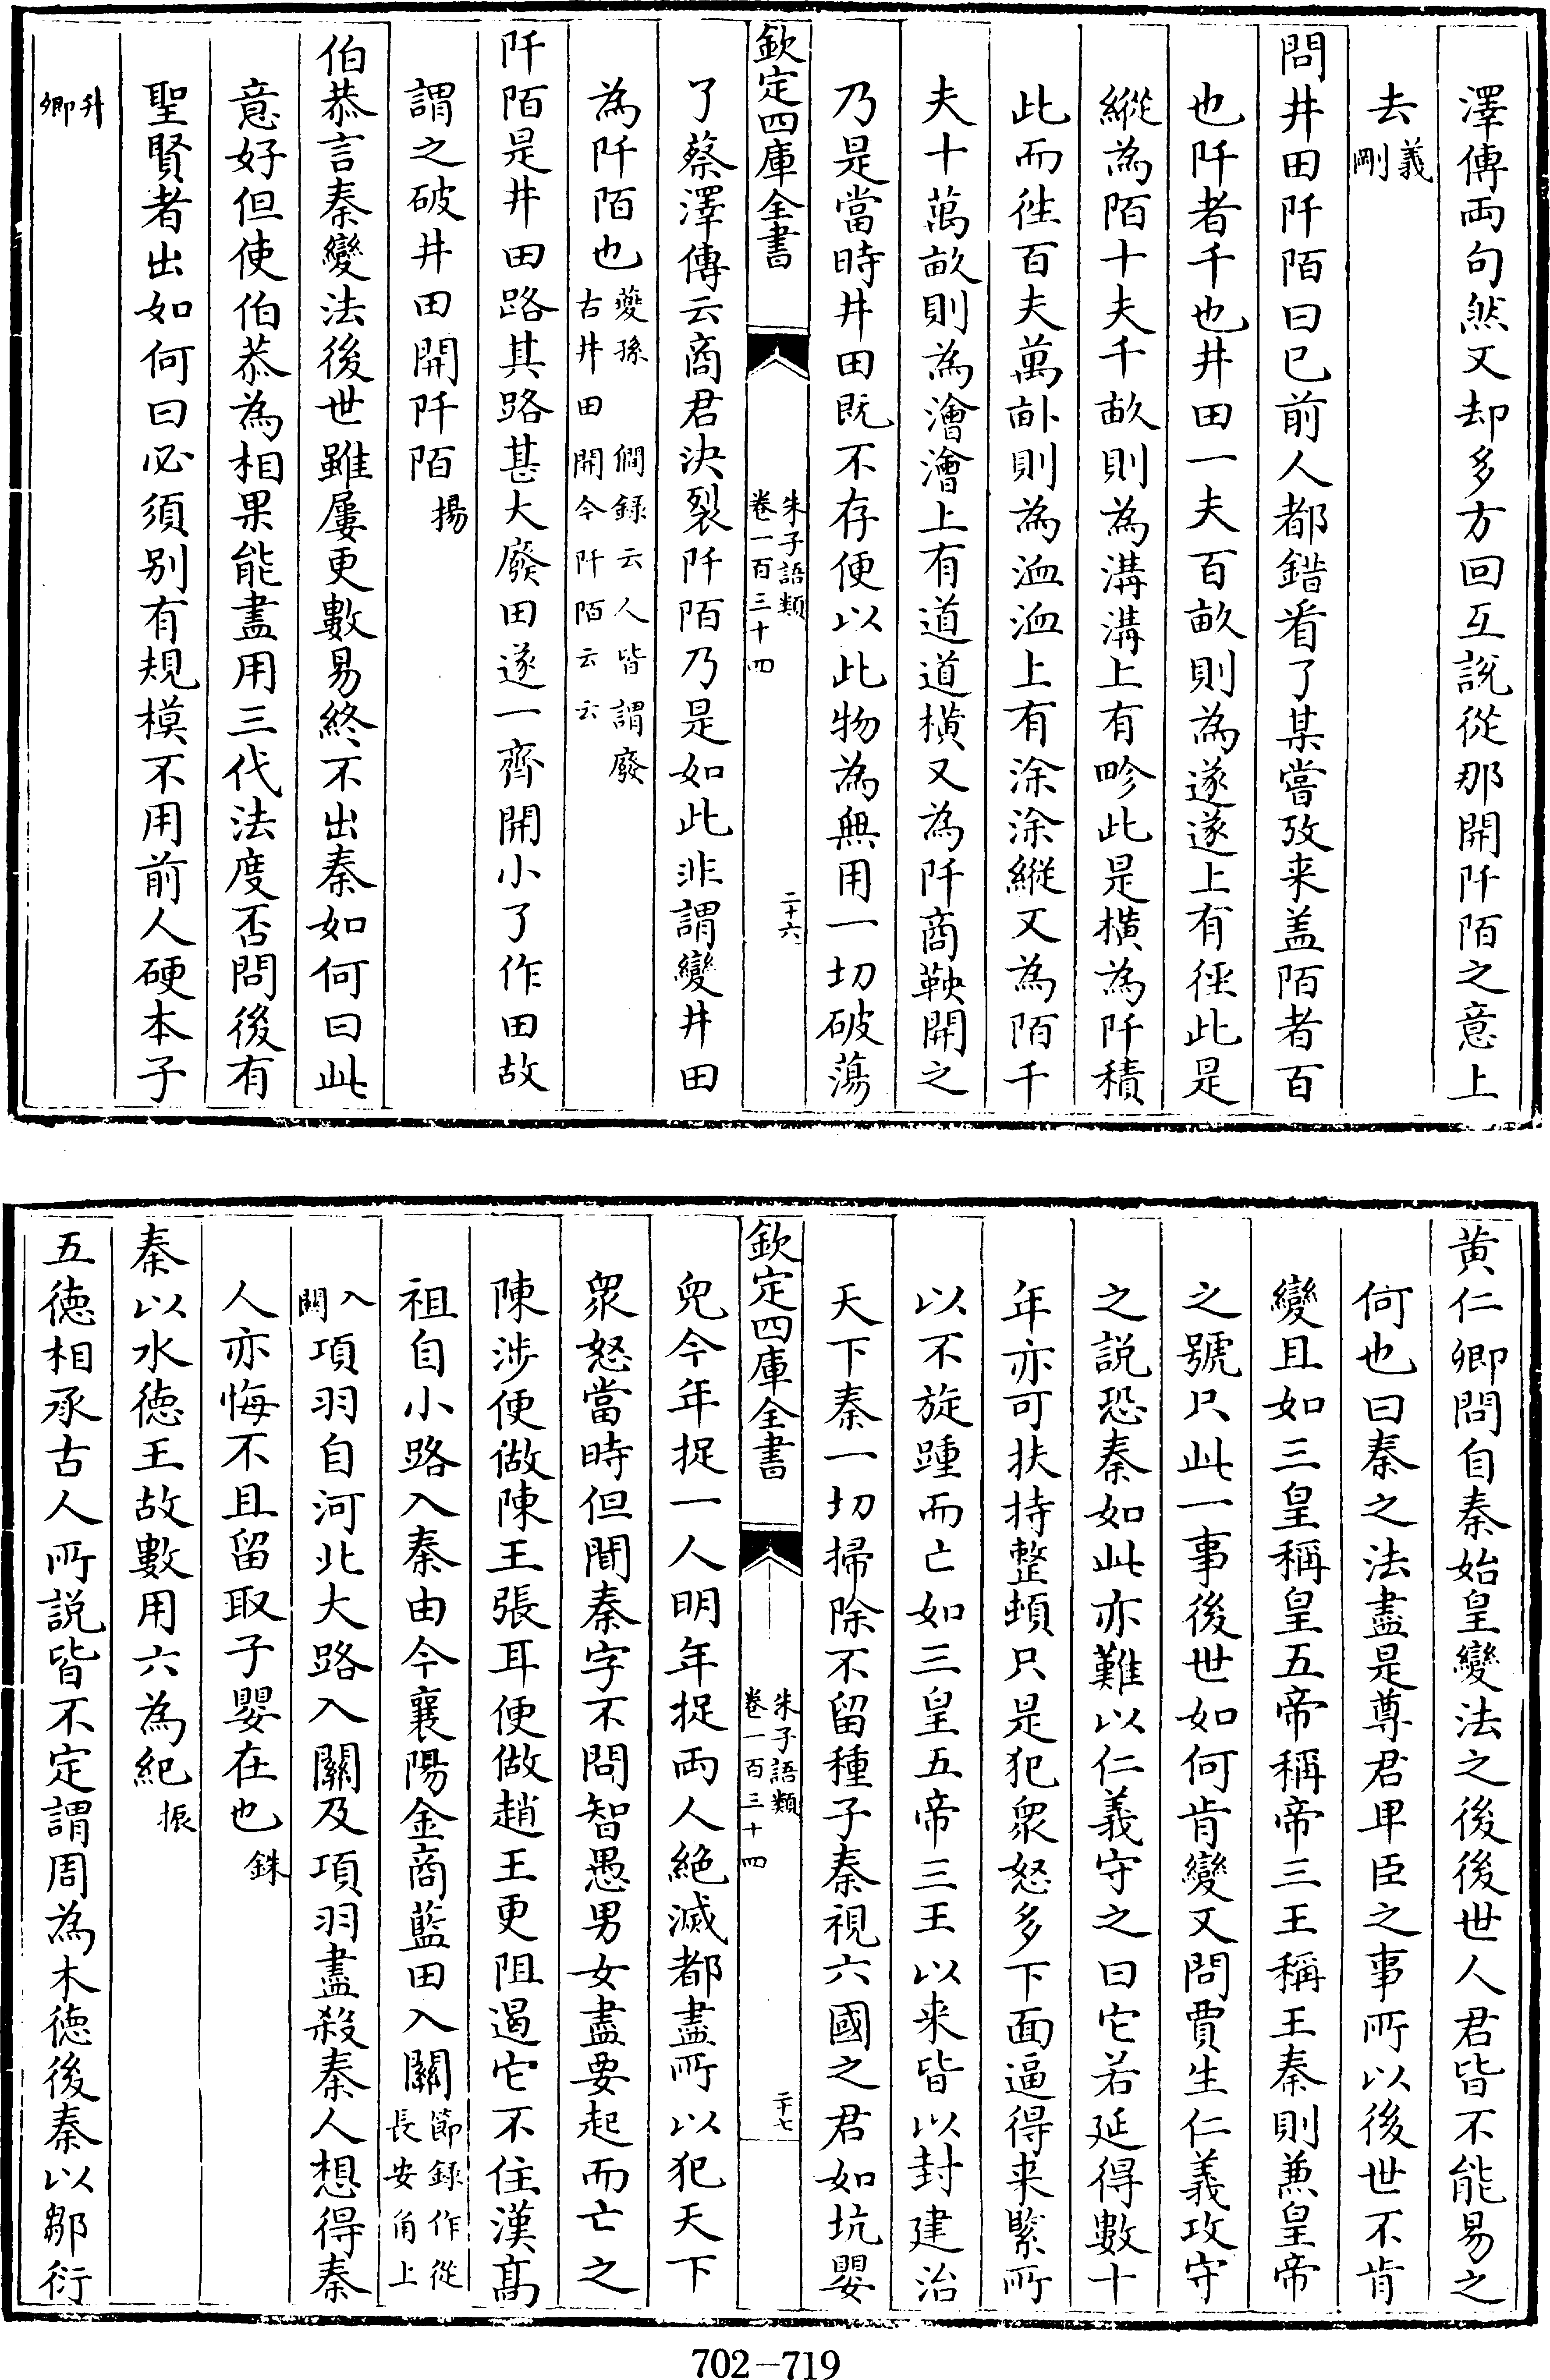 澤傳兩句然又却多方回互說從那開阡陌之意上
去義剛
問井田阡陌曰已前人都錯看了某嘗攷来盖陌者百
也阡者千也井田一夫百畝則為遂遂上有徑此是
縱為陌十夫千畝則為溝溝上有畛此是橫為阡積
此而徃百夫萬畝則為洫洫上有涂涂縱又為陌千
夫十萬畝則為澮澮上有道道橫又為阡商鞅開之
乃是當時井田既不存便以此物為無用一切破蕩
欽定四庫全書
朱子語類
卷一百三十四
二十六
了蔡澤傳云商君決裂阡陌乃是如此非謂變井田
為阡陌也夔孫　僩録云人皆謂廢
古井田　開今阡陌云云
阡陌是井田路其路甚大廢田遂一齊開小了作田故
謂之破井田開阡陌揚
伯恭言秦變法後世雖屢更數易終不出秦如何曰此
意好但使伯恭為相果能盡用三代法度否問後有
聖賢者出如何曰必須别有規模不用前人硬本子
升卿
黄仁卿問自秦始皇變法之後後世人君皆不能易之
何也曰秦之法盡是尊君卑臣之事所以後世不肯
變且如三皇稱皇五帝稱帝三王稱王秦則兼皇帝
之號只此一事後世如何肯變又問賈生仁義攻守
之説恐秦如此亦難以仁義守之曰它若延得數十
年亦可扶持整頓只是犯衆怒多下面逼得来緊所
以不旋踵而亡如三皇五帝三王以来皆以封建治
天下秦一切掃除不留種子秦視六國之君如坑嬰
欽定四庫全書
朱子語類
卷一百三十四
二十七
兒今年捉一人明年捉兩人絶滅都盡所以犯天下
衆怒當時但聞秦字不問智愚男女盡要起而亡之
陳涉便做陳王張耳便做趙王更阻遏它不住漢髙
祖自小路入秦由今襄陽金商藍田入關節録作從
長安角上
入關項羽自河北大路入關及項羽盡殺秦人想得秦
人亦悔不且留取子嬰在也銖
秦以水德王故數用六為紀振
五徳相承古人所説皆不定謂周為木徳後秦以鄒衍
702-719